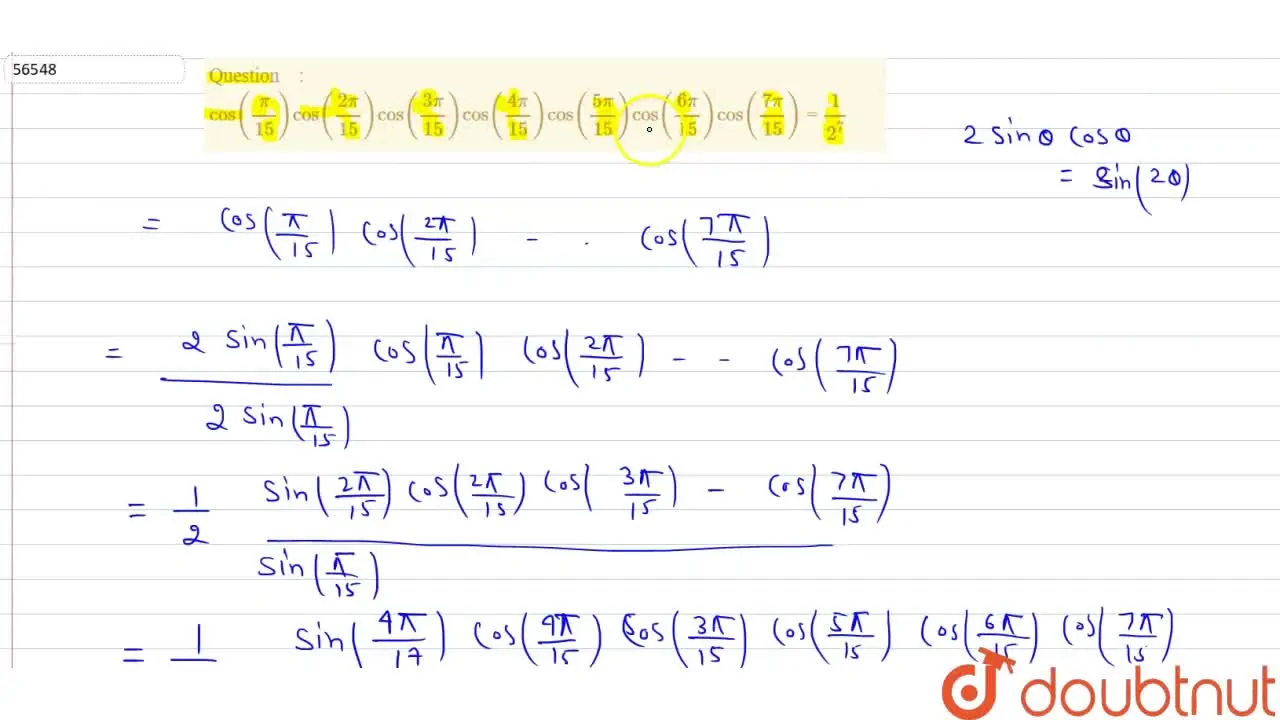 56548
Question :
cos(π/15)cos(2π/15)cos(3π/15)cos(4π/15)cos(5π/15)cos(6π/15)cos(7π/15) = 1/2^7
2 Sinθ Cosθ
= Sin(2θ)
= Cos(π/15) Cos(2π/15) - . Cos(7π/15)
= 2 Sin(π/15) Cos(π/15) Cos(2π/15) - - Cos(7π/15)
2 Sin(π/15)
= 1/2 Sin(2π/15) Cos(2π/15) Cos(3π/15) - Cos(7π/15)
Sin(π/15)
= 1 Sin(4π/17) Cos(4π/15) Cos(3π/15) Cos(5π/15) Cos(6π/15) Cos(7π/15)
doubtnut